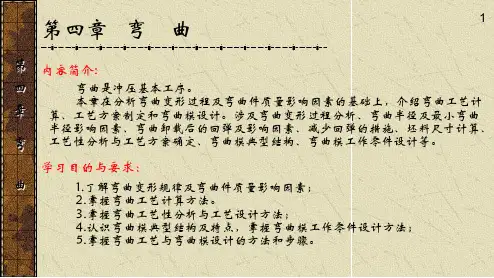 1
第四章 弯 曲
第四章 弯 曲
内容简介：
弯曲是冲压基本工序。
本章在分析弯曲变形过程及弯曲件质量影响因素的基础上，介绍弯曲工艺计
算、工艺方案制定和弯曲模设计。涉及弯曲变形过程分析、弯曲半径及最小弯曲
半径影响因素、弯曲卸载后的回弹及影响因素、减少回弹的措施、坯料尺寸计算、
工艺性分析与工艺方案确定、弯曲模典型结构、弯曲模工作零件设计等。
学习目的与要求：
1.了解弯曲变形规律及弯曲件质量影响因素；
2.掌握弯曲工艺计算方法。
3.掌握弯曲工艺性分析与工艺设计方法；
4.认识弯曲模典型结构及特点，掌握弯曲模工作零件设计方法；
5.掌握弯曲工艺与弯曲模设计的方法和步骤。